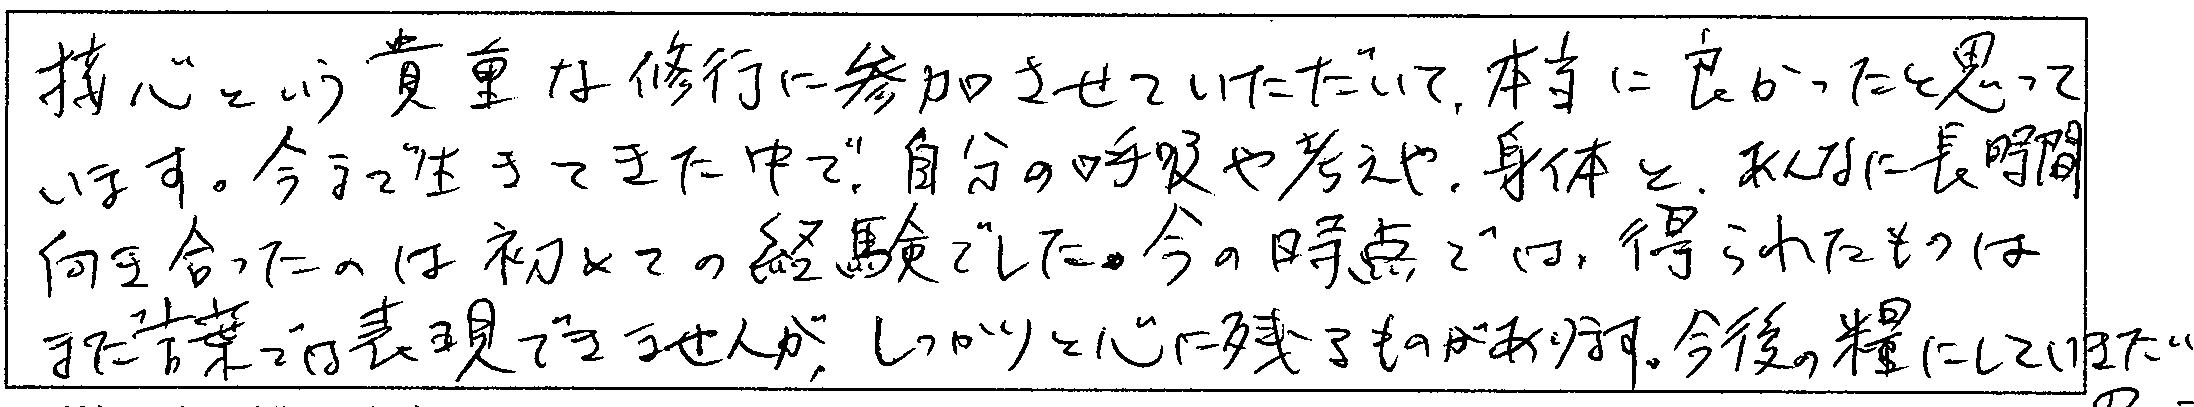 接心という貴重な修行に参加させていただいて、本当に良かったと思って
います。今まで生きてきた中で、自分の呼吸や考えや、身体と、あんなに長時間
向き合ったのは初めての経験でした。今の時点では、得られたものは
まだ言葉では表現できませんが、しっかりと心に残るものがあります。今後の糧にしていきたい